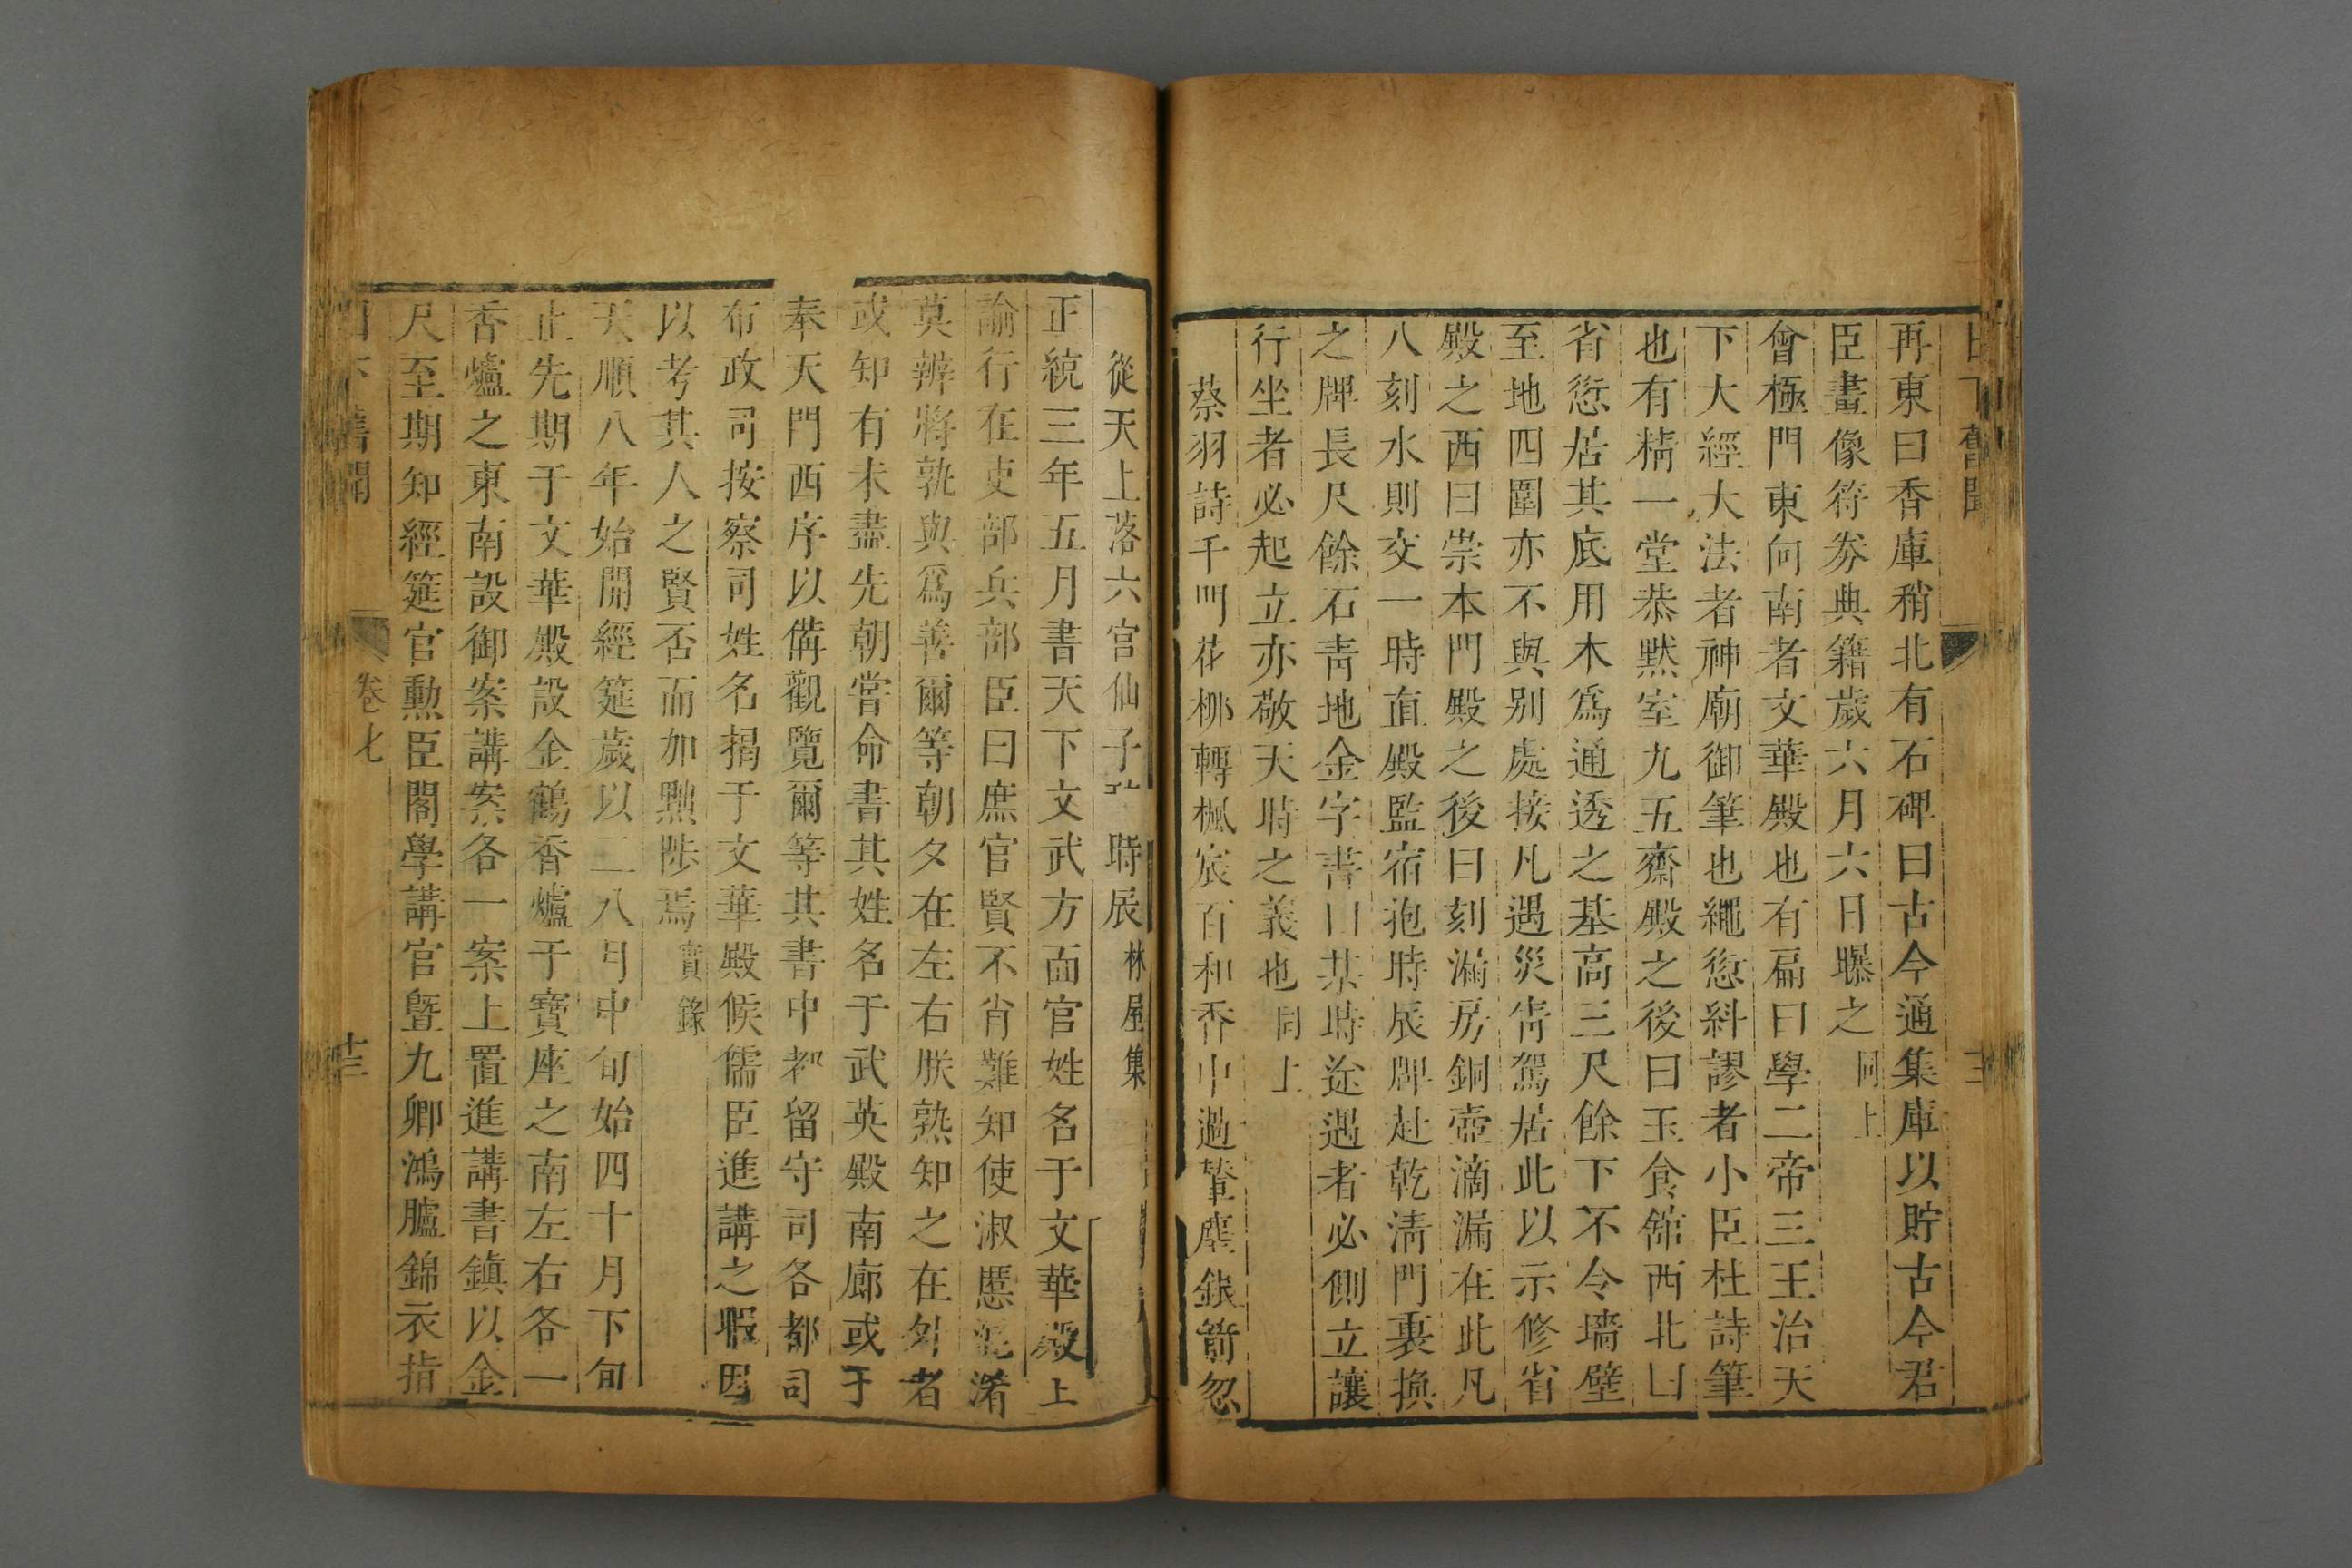 日下舊聞
再東曰香庫稍北有石碑曰古今通集庫以貯古今君
臣畫像符券典籍歲六月六日曝之同上
會極門東向南者文華殿也有扁曰學二帝三王治天
下大經大法者神廟御筆也繩愆糾謬者小臣杜詩筆
也有精一堂恭默室九五齋殿之後曰玉食館西北曰
省愆居其底用木爲通透之基高三尺餘下不令墻壁
至地四圍亦不與别處接凡遇災眚駕居此以示修省
殿之西曰崇本門殿之後曰刻漏房銅壺滴漏在此凡
八刻水則交一時直殿監宿抱時辰牌赴乾淸門裏換
之牌長尺餘石靑地金字書曰某時途遇者必側立讓
行坐者必起立亦敬天時之義也同上
蔡羽詩千門花柳轉楓宸百和香中過輦塵銀箭忽
從天上落六宫仙子 時辰林屋集
正統三年五月書天下文武方面官姓名于文華殿上
諭行在吏部兵部臣曰庶官賢不肖難知使淑慝混淆
莫辨將孰與爲善爾等朝夕在左右朕熟知之在外者
或知有未盡先朝嘗命書其姓名于武英殿南廊或于
奉天門西序以備觀覽爾等其書中都留守司各都司
布政司按察司姓名揭于文華殿候儒臣進講之暇因
以考其人之賢否而加黜陟焉實錄
天順八年始開經筵歲以二八月中旬始四十月下旬
止先期于文華殿設金鶴香爐于寶座之南左右各一
香爐之東南設御案講案各一案上置進講書鎭以金
尺至期知經筵官勳臣閣學講官曁九卿鴻臚錦衣指
日下舊聞 卷七 十三